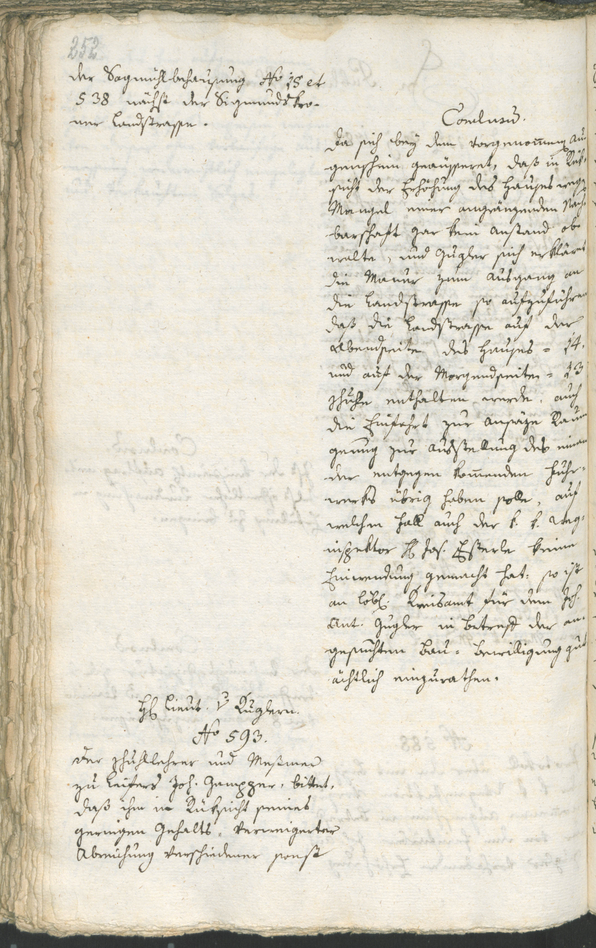 252
der Sagmühlbehausung No 18 et
538 nächst der Sigmundskro-
ner Landstrasse.
Conclusum.
Da sich bey dem vorgenommenen Au-
genschein geäussert, daß in Rük-
sicht der Erhöhung des Hauses wegen
Mangel einer angränzenden Nach-
barschaft gar kein Anstand ob-
walte, und Gugler sich erkläret
die Mauer zum Ausgang an
die Landstrasse so aufzuführen
daß die Landstrasse auf der
Abendseite des Hauses = 14.
und auf der Morgendseite = 13
Schuhe enthalten werde, auch
die Einfahrt zur
zur Ausstellung des einen
der entgegen kommenden Fuhr-
werks übrig haben solle, auf
welchen Fall auch der k. k. Weg-
inspektor H Jos. Eßerle keine
Einwendung gemacht hat: so ist
an löbl. Kreisamt für den Joh.
Ant. Gugler in Betreff der an-
gesuchten Bau-Bewilligung gut-
ächtlich einzurathen.
H Lieut. v Kuglern.
No 593.
Der Schullehrer und Meßmer
zu Leifers Joh. Gampper, bittet,
daß ihm in Rüksicht seines
geringen Gehalts, verweigerter
Abreichung verschiedener sonst